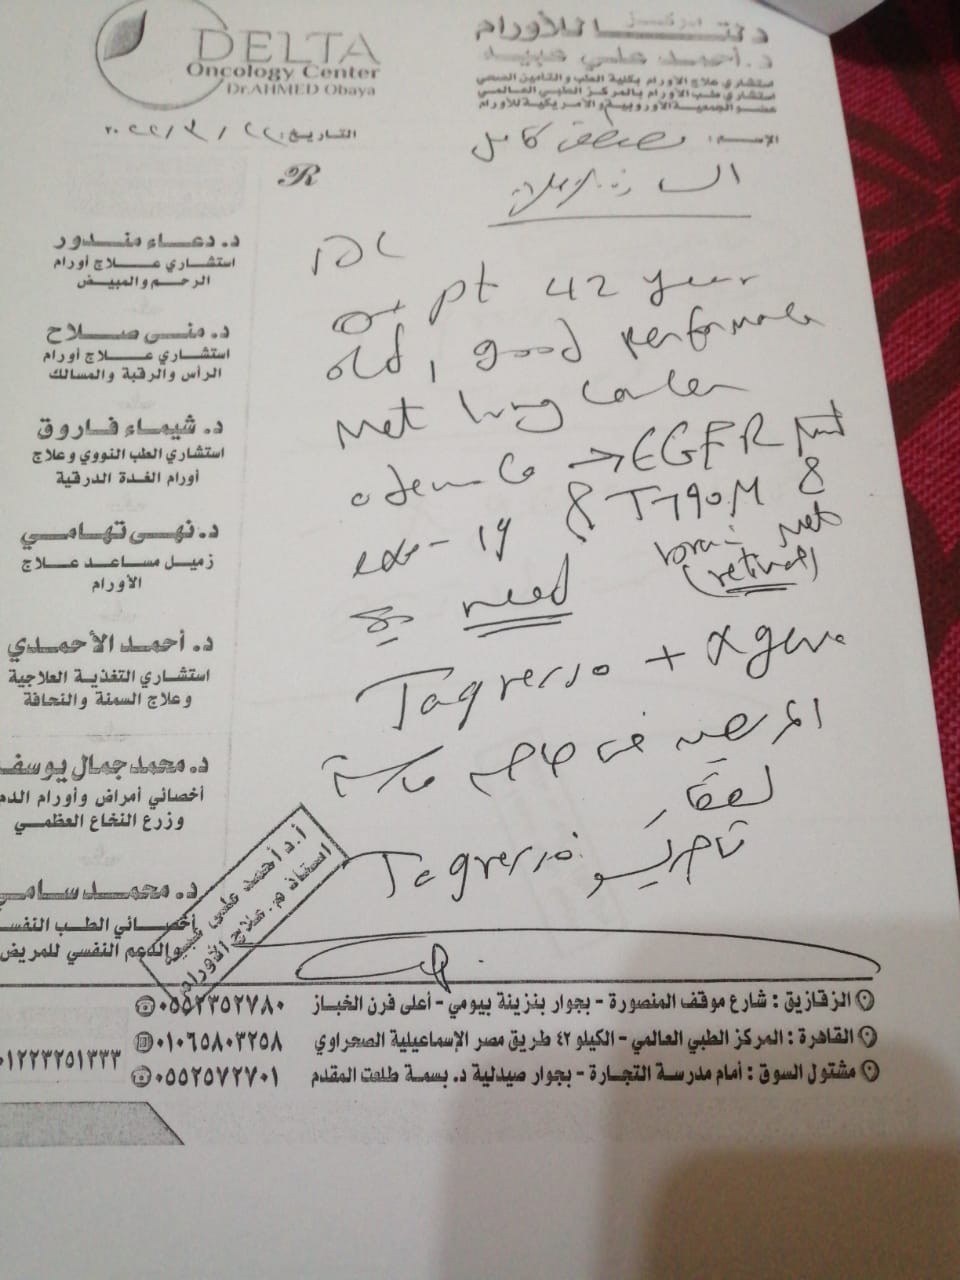 DELTA
Oncology Center
Dr.AHMED Obaya
دلتا للأورام
د. أحمد علي عبيه
استشاري علاج الأورام بكلية الطب والتأمين الصحي
استشاري طب الأورام بالمركز الطبي العالمي
عضو الجمعية الأوروبية والأمريكية للأورام
الإسم: مصطفى كامل
التاريخ: ٢٢/٣/٢٠٢٢
السادة
د. دعاء مندور
استشاري علاج أورام
الرحم والمبيض
د. منى صلاح
استشاري علاج أورام
الرأس والرقبة والمسالك
د. شيماء فاروق
استشاري الطب النووي وعلاج
أورام الغدة الدرقية
د. نهى تهامي
زميل مساعد علاج
الأورام
د. أحمد الأحمدي
استشاري التغذية العلاجية
وعلاج السمنة والنحافة
د. محمد جمال يوسف
أخصائي أمراض وأورام الدم
وزرع النخاع العظمي
د. محمد سامي
أخصائي الطب النفسي
والدعم النفسي للمريض
pt 42 year
old, good performance
Met lung cancer
adeno → EGFR mut
exo-19 & T790M &
brain met
need
Tagresso + Xgeva
المريض في حاجة ماسة
لعقار
Tagresso تاجريسو
أ.د أحمد على عبيه
استاذ م. علاج الأورام
الزقازيق : شارع موقف المنصورة - بجوار بنزينة بيومي - أعلى فرن الخباز ٠٥٥٢٣٥٢٧٨٠
القاهرة : المركز الطبي العالمي - الكيلو ٤٢ طريق مصر الإسماعيلية الصحراوي ٠١٠٦٥٨٠٣٢٥٨
٠١٢٢٣٢٥١٣٣٣
مشتول السوق : أمام مدرسة التجارة - بجوار صيدلية د. بسمة طلعت المقدم ٠٥٥٢٥٧٢٧٠١